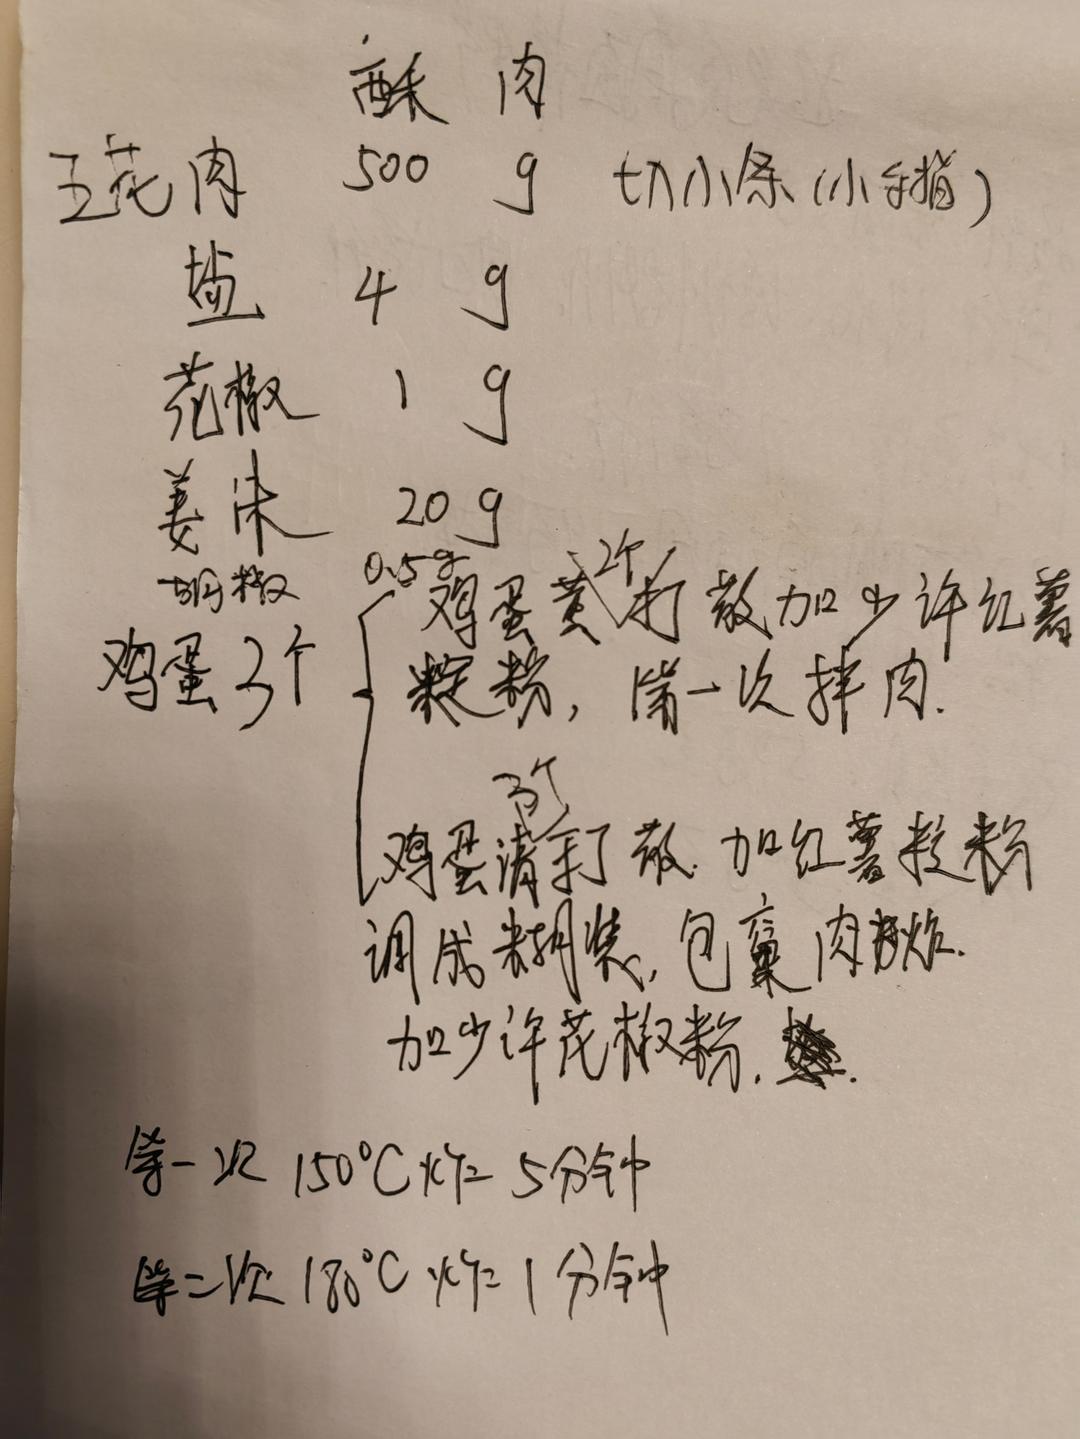 酥肉
五花肉 500 g 切小条(小手指)
盐 4 g
花椒 1 g
姜末 20 g
胡椒 0.5g
鸡蛋3个
鸡蛋黄2个打散加少许红薯
淀粉，第一次拌肉.
3个
鸡蛋清打散.加红薯粉
调成糊装,包裹肉炸.
加少许花椒粉.
第一次 150°C炸 5分钟
第二次 180°C炸 1分钟